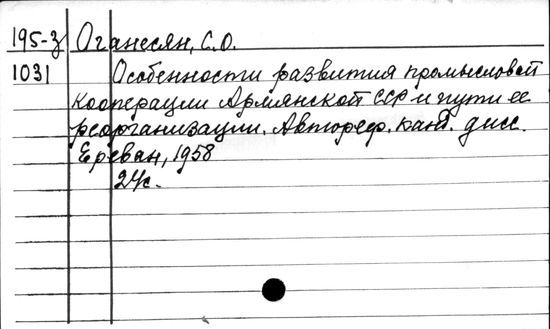 195-3 Оганесян, С.О.
1031 Особенности развития промысловой
кооперации Армянской ССР и пути ее
реорганизации. Автореф. канд. дисс.
Ереван, 1958
24с.